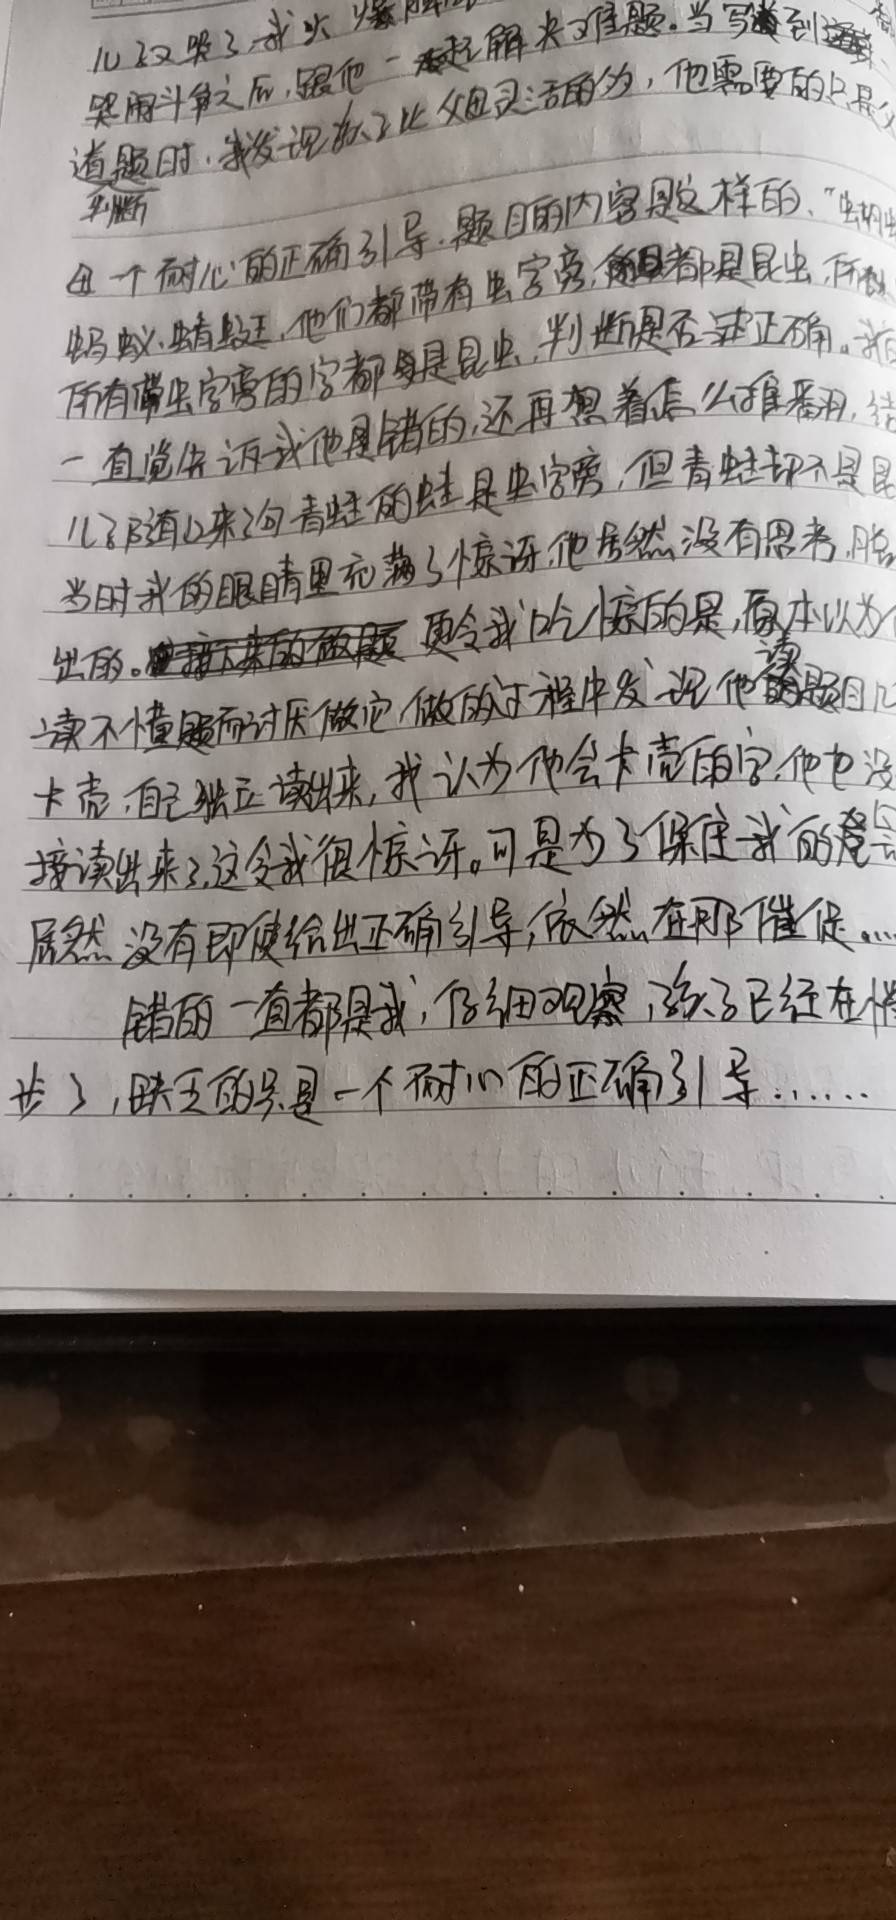 儿又哭了,我火爆脾
哭闹斗争之后,跟他一起解决难题。当写到
道题时,我发现孩子比父母灵活的多,他需要的只是父
判断
母一个耐心的正确引导.题目的内容是这样的、"蝴
蚂蚁、蜻蜓,他们都带有虫字旁,都是昆虫,所以
所有带虫字旁的字都是昆虫,判断是否正确。我
一直觉告诉我他是错的,还再想着怎么推翻,结
儿子随口来句青蛙的蛙是虫字旁,但青蛙却不是昆
当时我的眼睛里充满了惊讶,他居然没有思考,脱
出的。更令我吃惊的是,原本以为
读不懂题而讨厌做它,做的过程中发现他读题目几
卡壳,自己独立读出来,我认为他会卡壳的字,他也没
接读出来了,这令我很惊讶。可是为了保住我的
居然没有即使给出正确引导,依然在那催促。...
错的一直都是我,仔细观察,孩子已经在
步了,缺乏的只是一个耐心的正确引导......